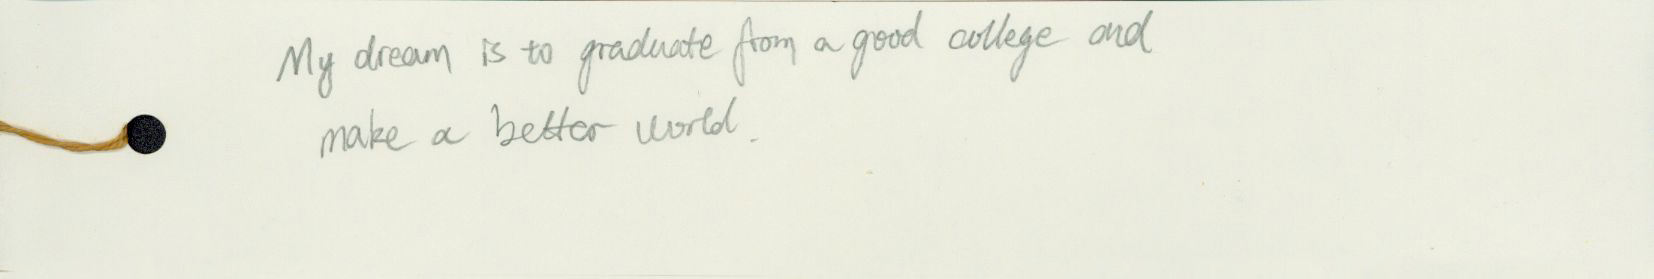 My dream is to graduate from a good college and
make a better world.